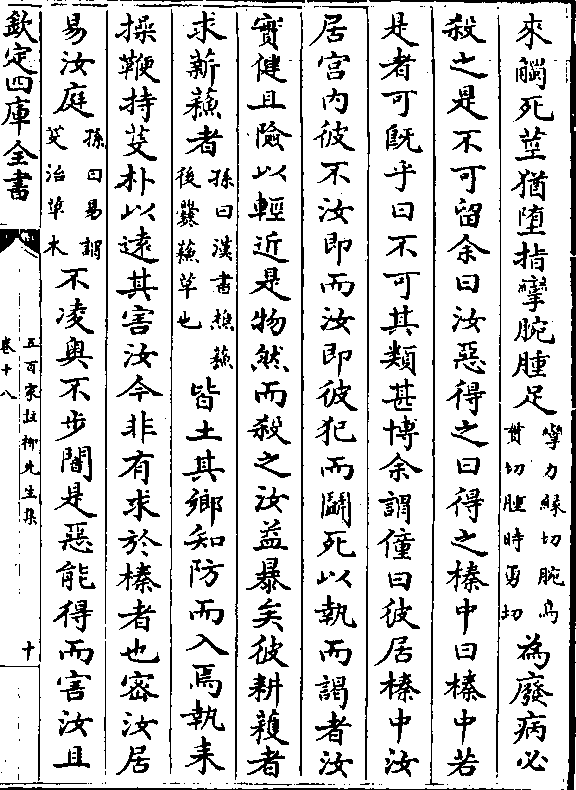 來觸死莖猶墮指攣腕腫足攣力縁切腕烏貫切腫時勇切為廢病必
殺之是不可留余曰汝惡得之曰得之榛中曰榛中若
是者可旣乎曰不可其類甚博余謂僮曰彼居榛中汝
居宫内彼不汝即而汝即彼犯而鬬死以執而謁者汝
實健且險以輕近是物然而殺之汝益暴矣彼耕穫者
求薪蘇者孫曰漢書樵蘇後爨蘇草也皆土其鄉知防而入焉執耒
操鞭持芟朴以逺其害汝今非有求於榛者也密汝居
易汝庭孫曰易謂芟治草木不凌奥不步闇是惡能得而害汝且
欽定四庫全書
五百家註柳先生集
卷十八
十